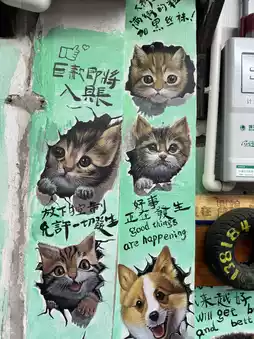 加黑丝裤!
巨款即將
入賬
放下控制
允許一切發生
好事
正在發生
Good things
are happening
218184
来越好
Will get b
and bett